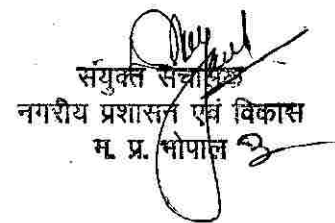 संयुक्त संचालक
नगरीय प्रशासन एवं विकास
म. प्र. भोपाल